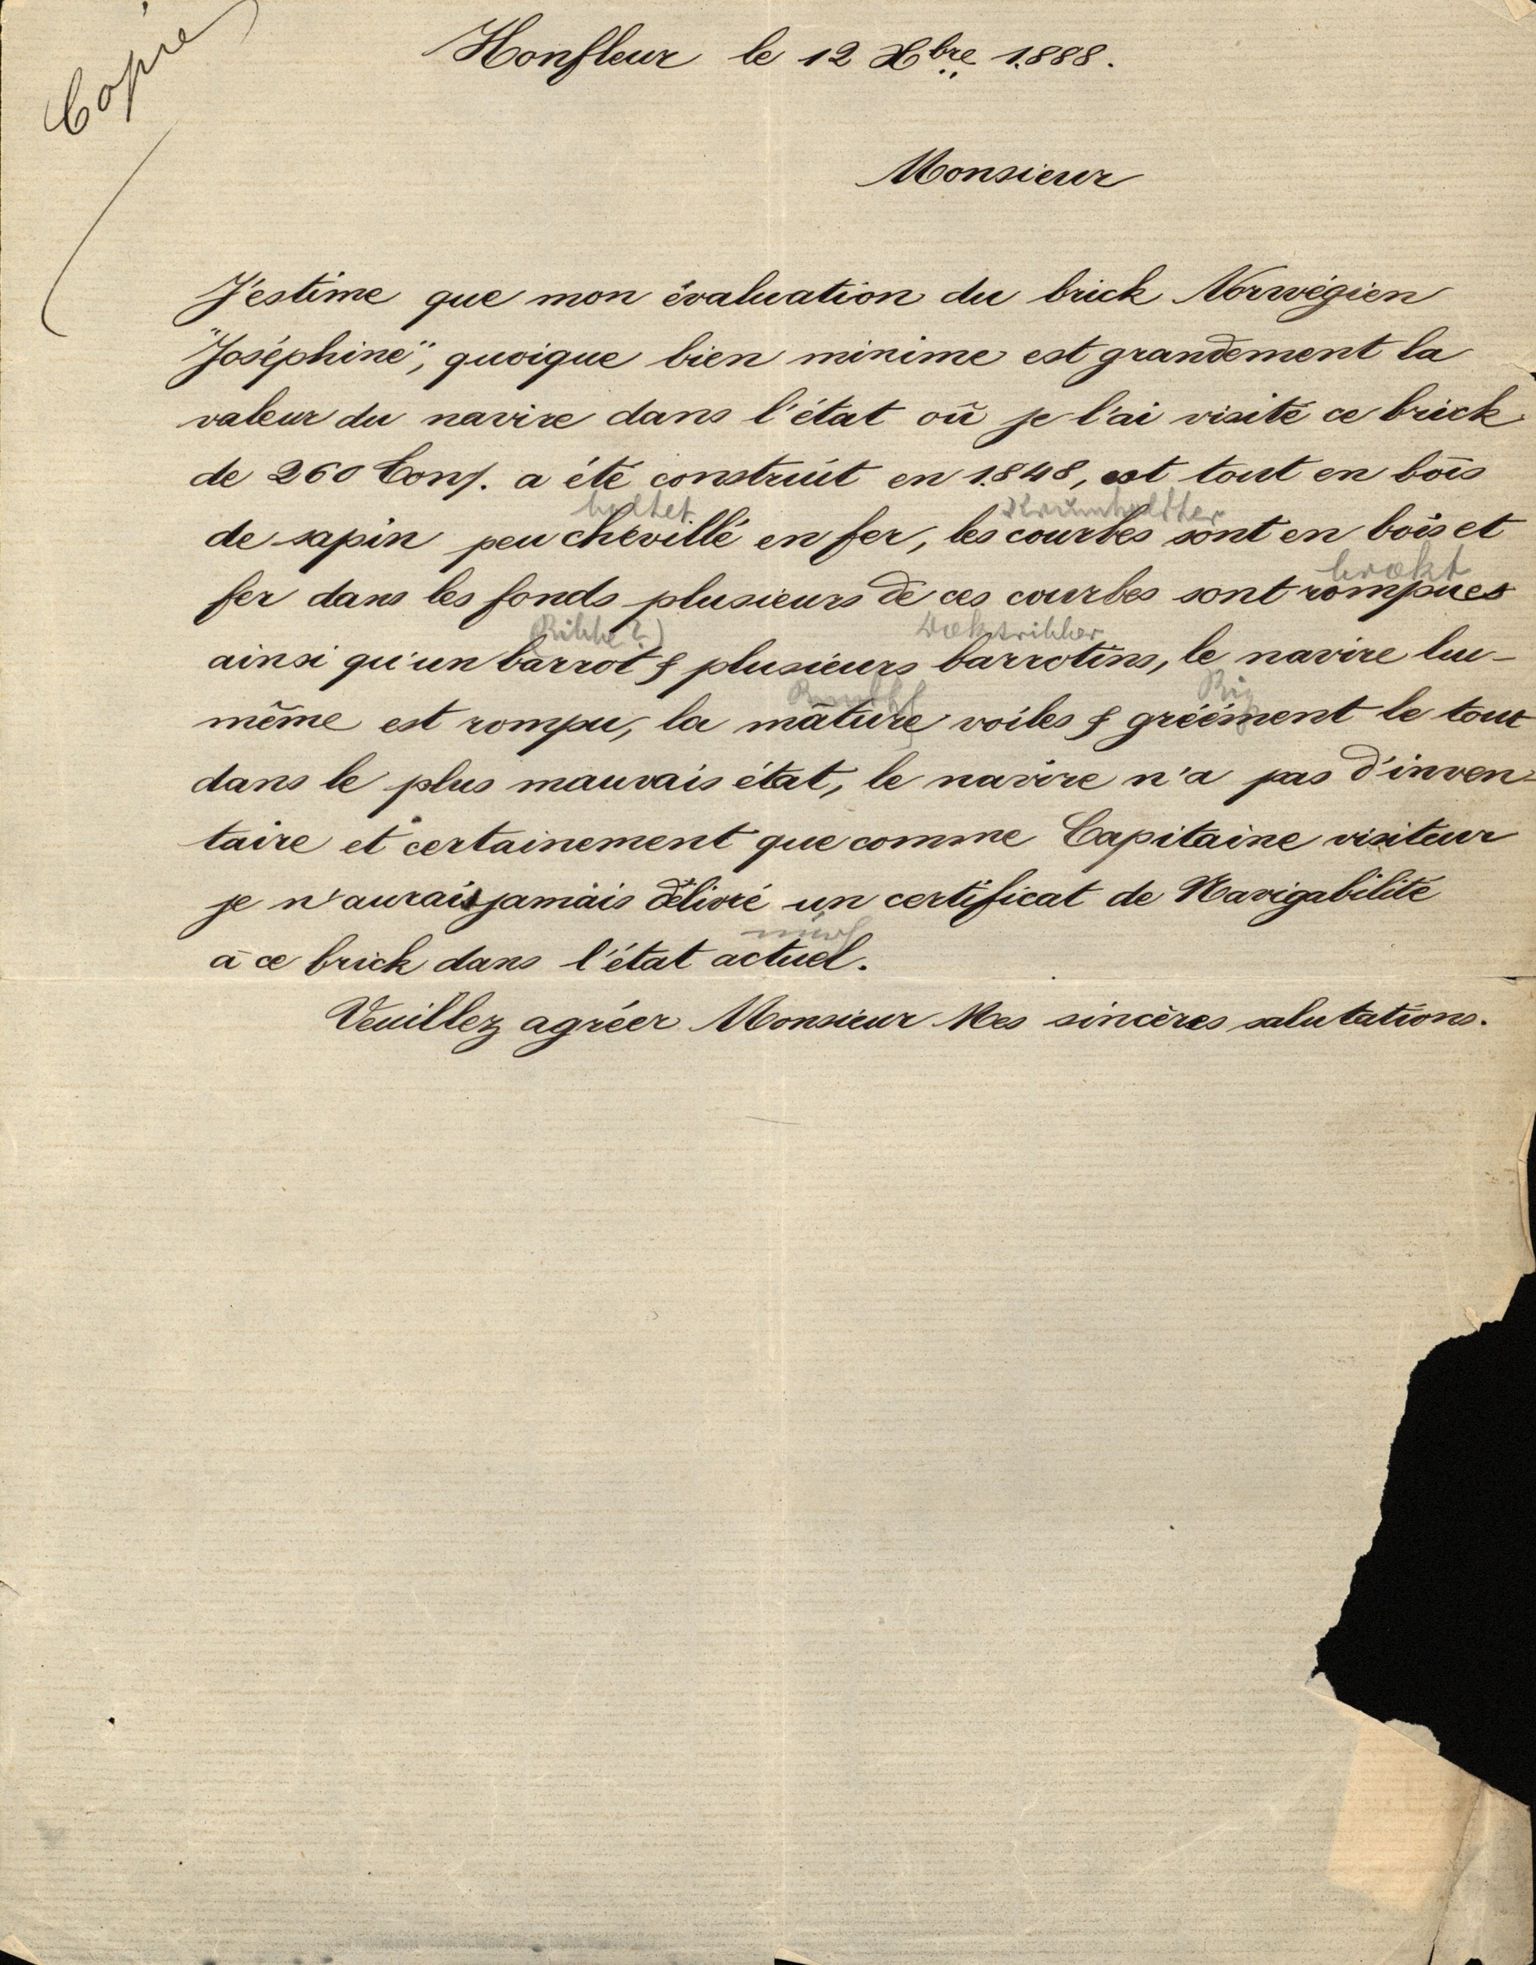 Copie
Honfleur le 12 Xbre 1888.
Monsieur
J'estime que mon évaluation du brick Norwégien
"Joséphine", quoique bien minime est grandement la
valeur du navire dans l'état où je l'ai visité ce brick
de 260 Tons. a été construit en 1848, est tout en bois
boltet
de sapin peu chevillé en fer, les courbes sont en bois et
brækt
fer dans les fonds plusieurs de ces courbes sont rompues
(Ribbe?) Dæksribber
ainsi qu'un barrot & plusieurs barrotins, le navire lui-
Rig
même est rompu, la mâture voiles & gréément le tout
dans le plus mauvais état, le navire n'a pas d'inven-
taire et certainement que comme Capitaine visiteur
je n'aurais jamais délivré un certificat de Navigabilité
à ce brick dans l'état actuel.
Veuillez agréer Monsieur Mes sincères salutations.